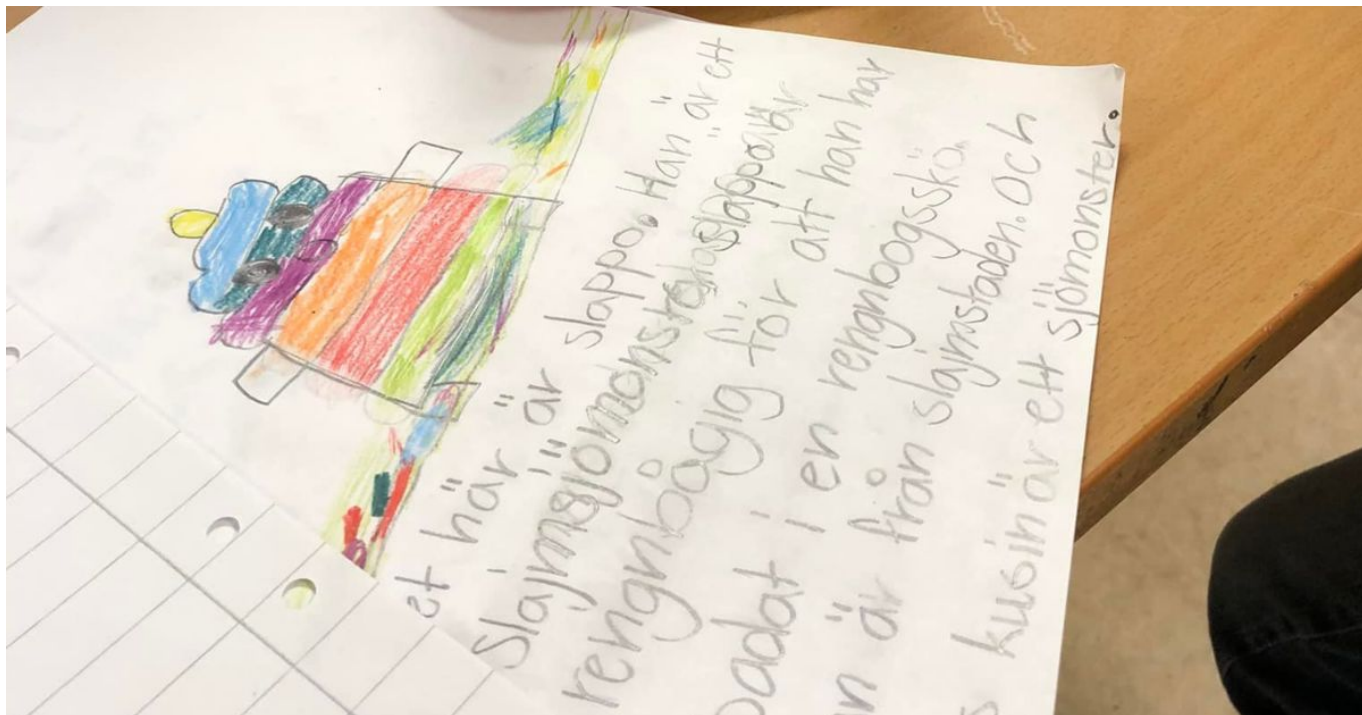 et här är slappo. Han är ett
Slajmsjömonster slappo är
rengnbågig för att han har
badat i en rengnbogssko.
an är från slajmstaden. Och
s kusin är ett sjömonster.